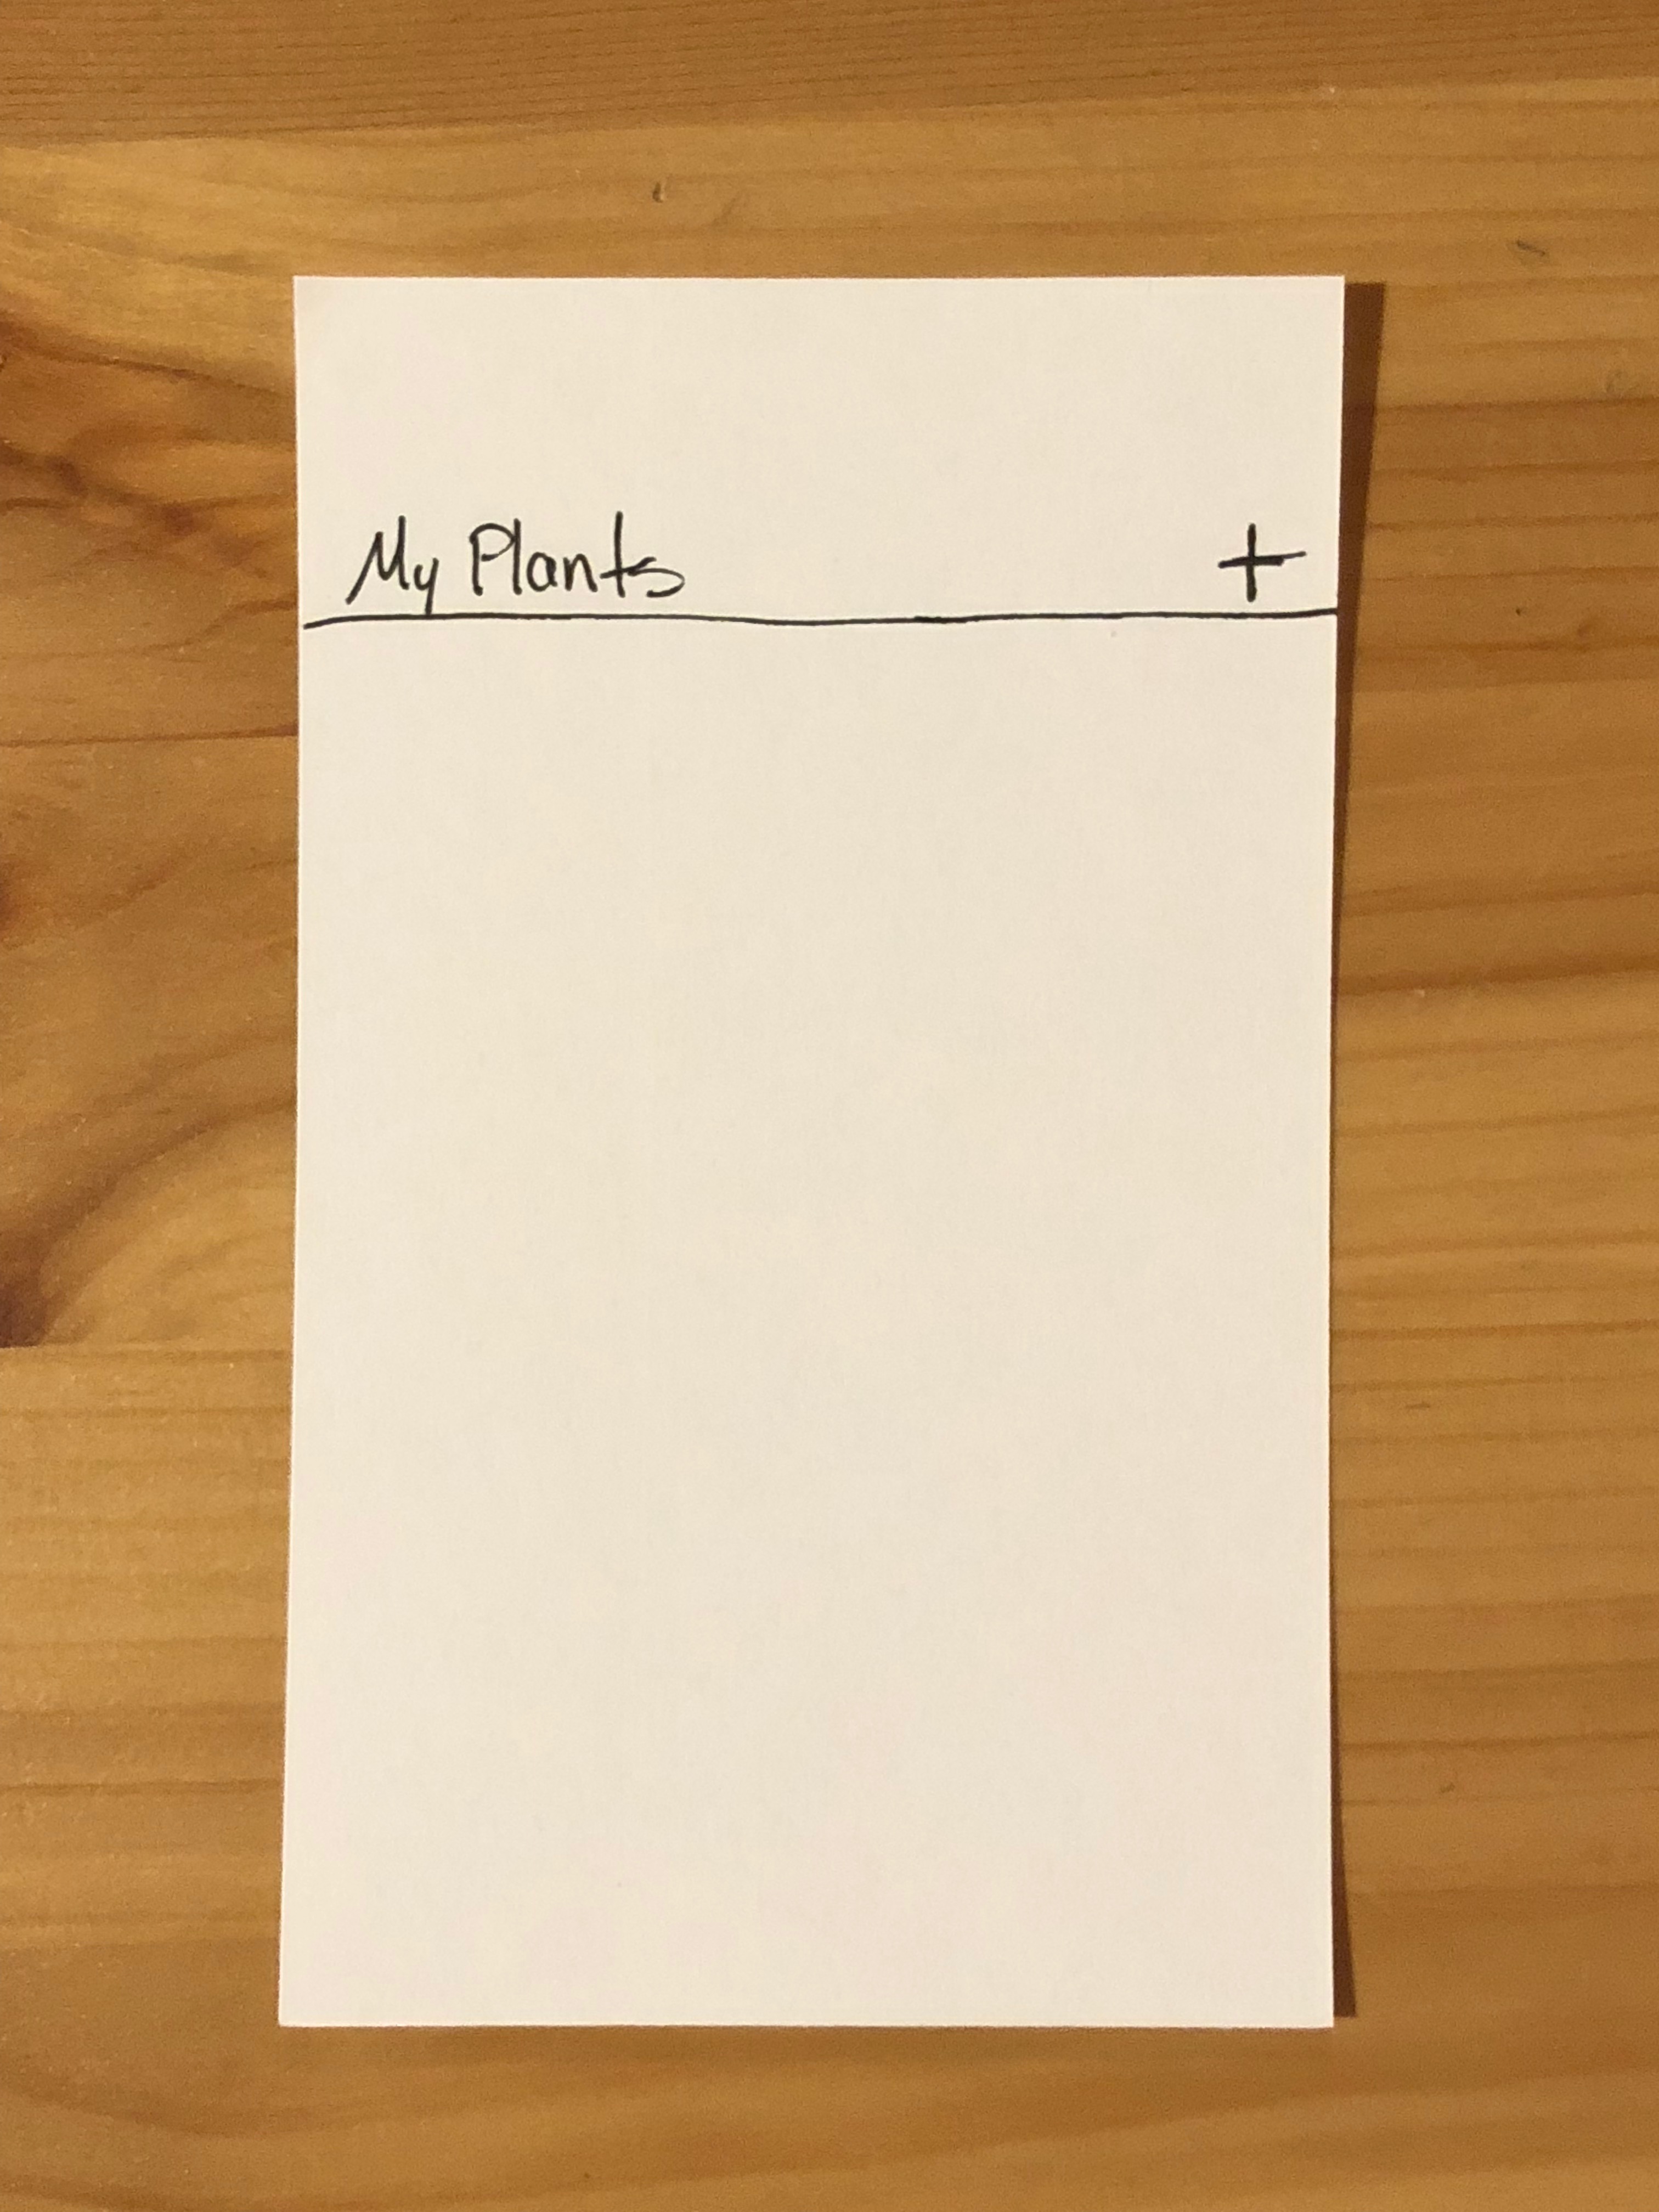 My Plants +